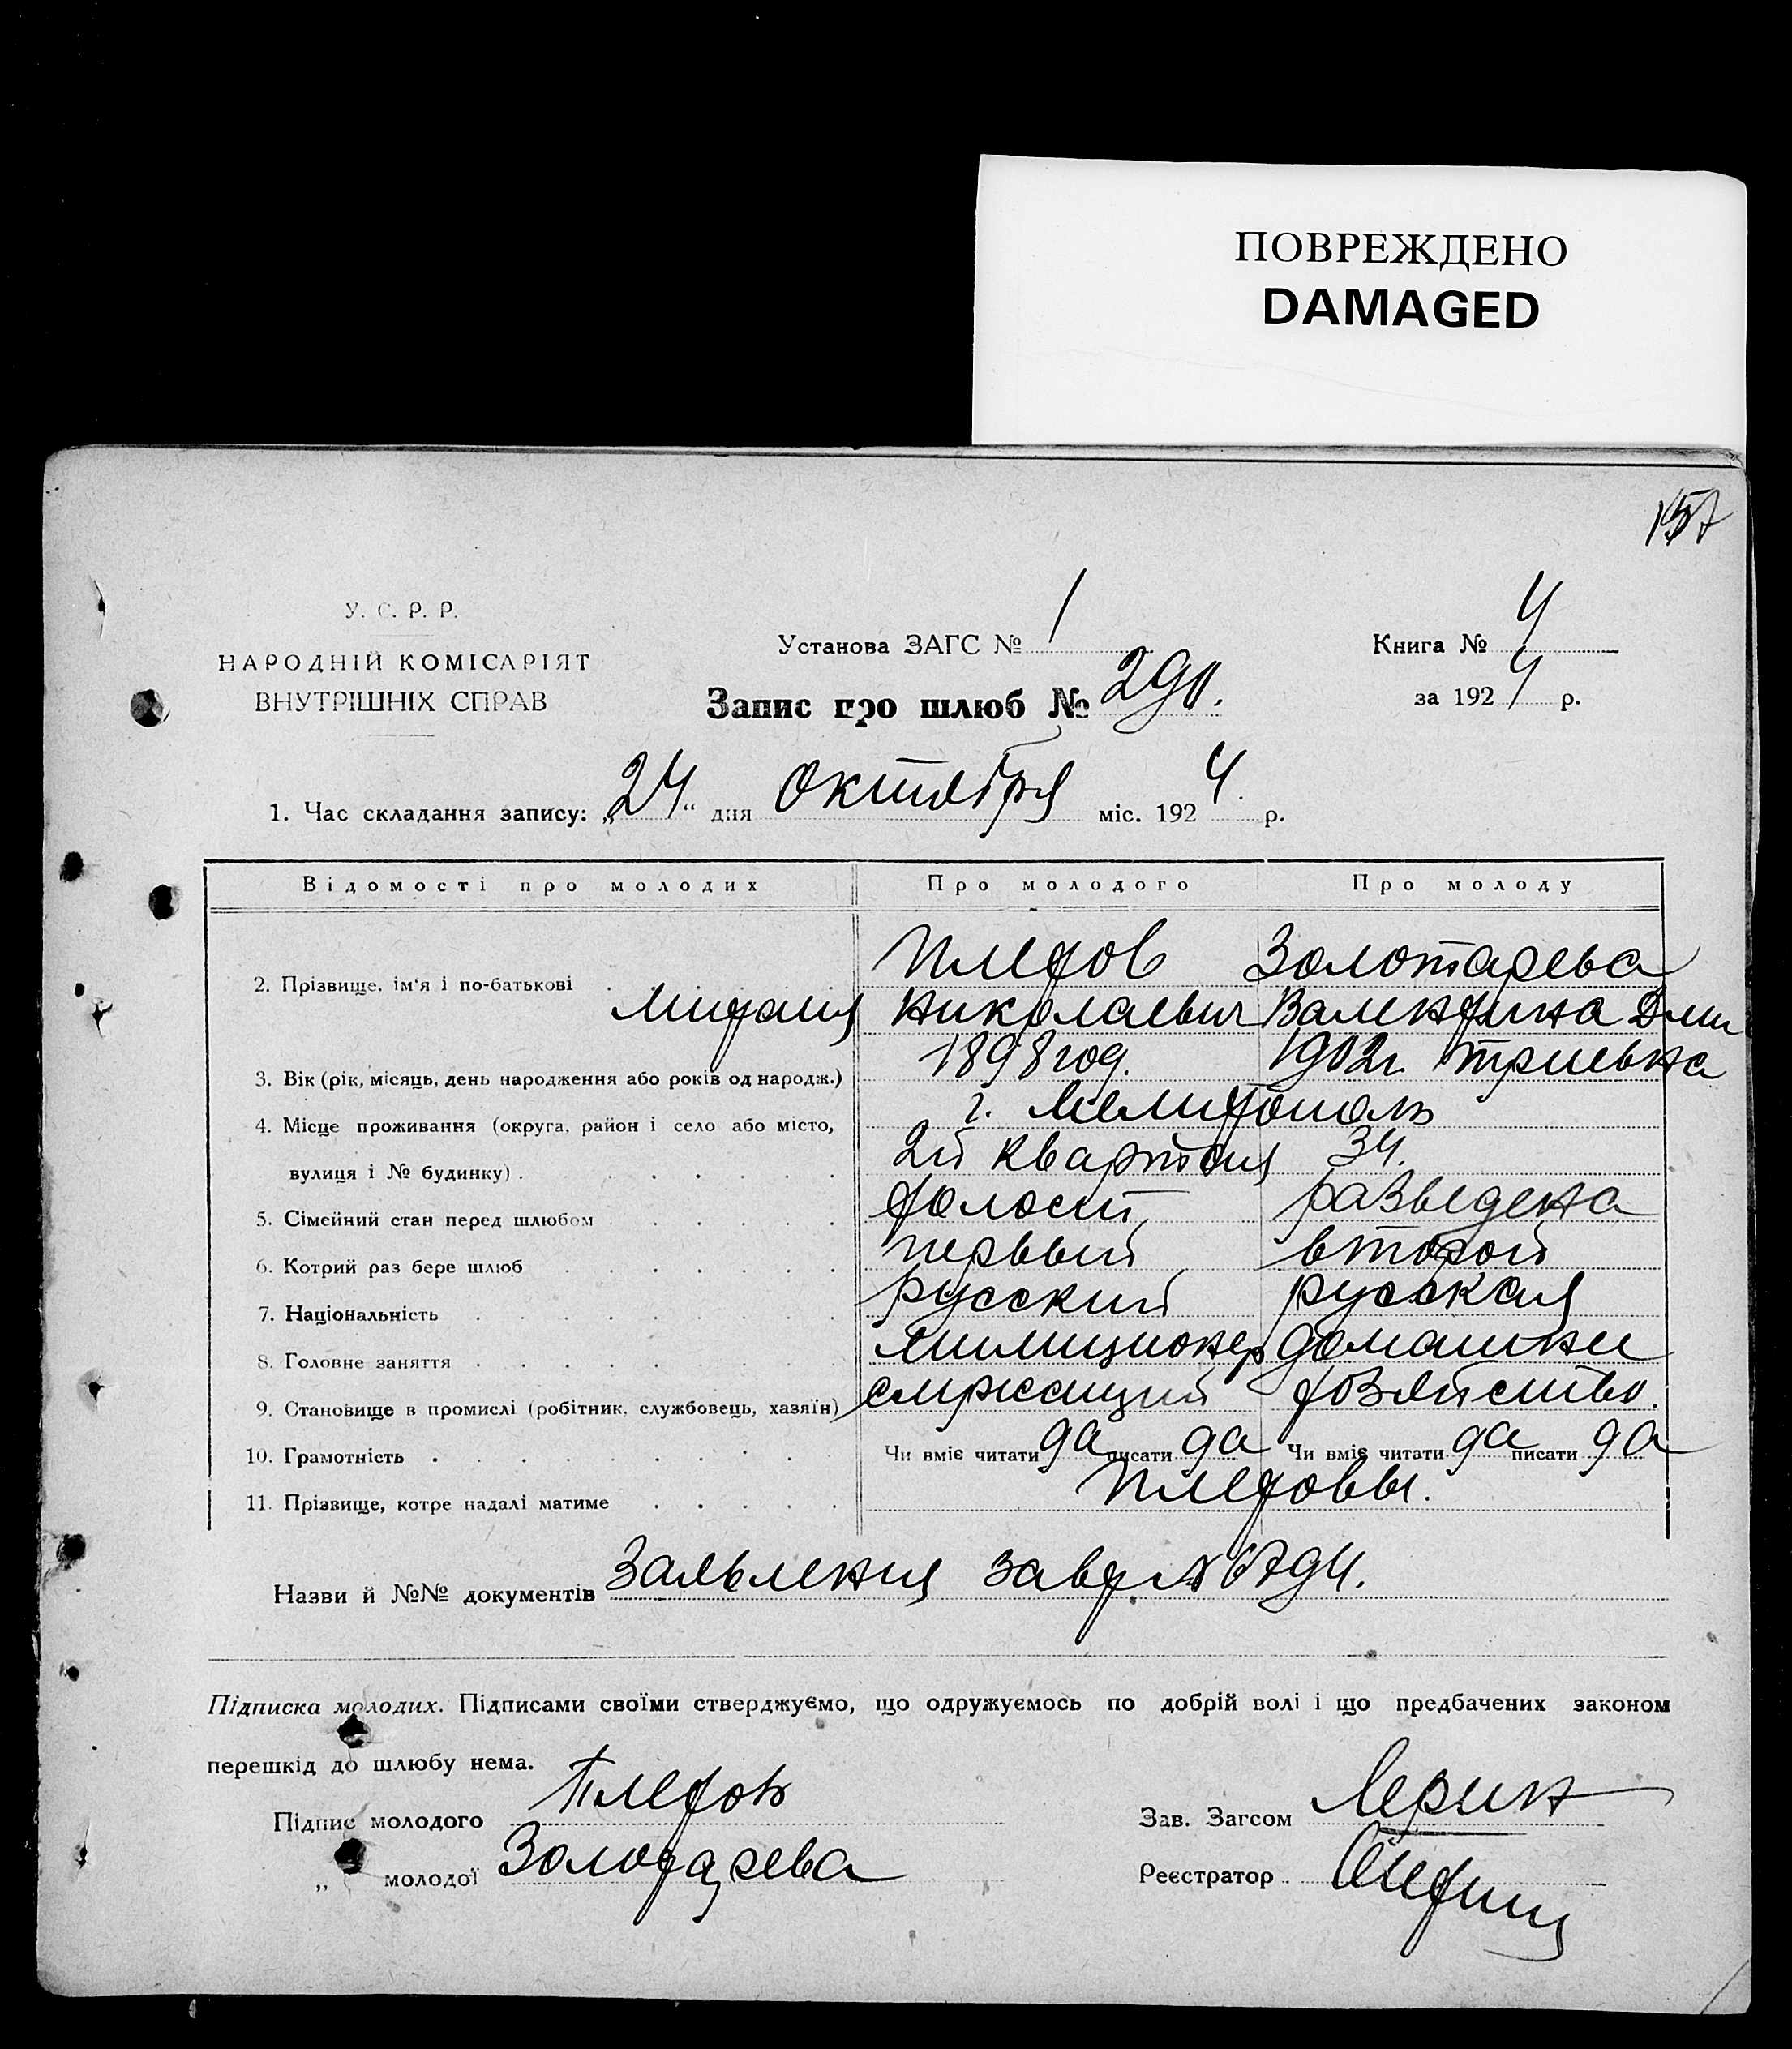 ПОВРЕЖДЕНО
DAMAGED
157
У. С. Р. Р.
НАРОДНІЙ КОМІСАРІЯТ
ВНУТРІШНІХ СПРАВ
Установа ЗАГС № 1
Запис про шлюб № 290.
Книга № 4
за 1924 р.
1. Час складання запису: „24“ дня октября міс. 1924 р.
Відомості про молодих Про молодого Про молоду
2. Прізвище, ім'я і по-батькові Плехов Золотарева
Михаил Николаевич Валентина Дми
3. Вік (рік, місяць, день народження або років од народж.) 1898 год. 1902г. триевна
4. Місце проживання (округа, район і село або місто, г. Мелитополь
вулиця і № будинку) 2й квартал 34.
5. Сімейний стан перед шлюбом холост, разведена
6. Котрий раз бере шлюб первый второй
7. Національність русский русская
8. Головне заняття милиционер домашнее
9. Становище в промислі (робітник, службовець, хазяїн) служащий хозяйство.
10. Грамотність Чи вміє читати да писати да Чи вміє читати да писати да
11. Прізвище, котре надалі матиме Плеховы.
Назви й №№ документів Заявления
Підписка молодих. Підписами своїми стверджуємо, що одружуємось по добрій волі і що предбачених законом
перешкід до шлюбу нема.
Підпис молодого Плехов
„ молодої Золотарева
Зав. Загсом
Реєстратор